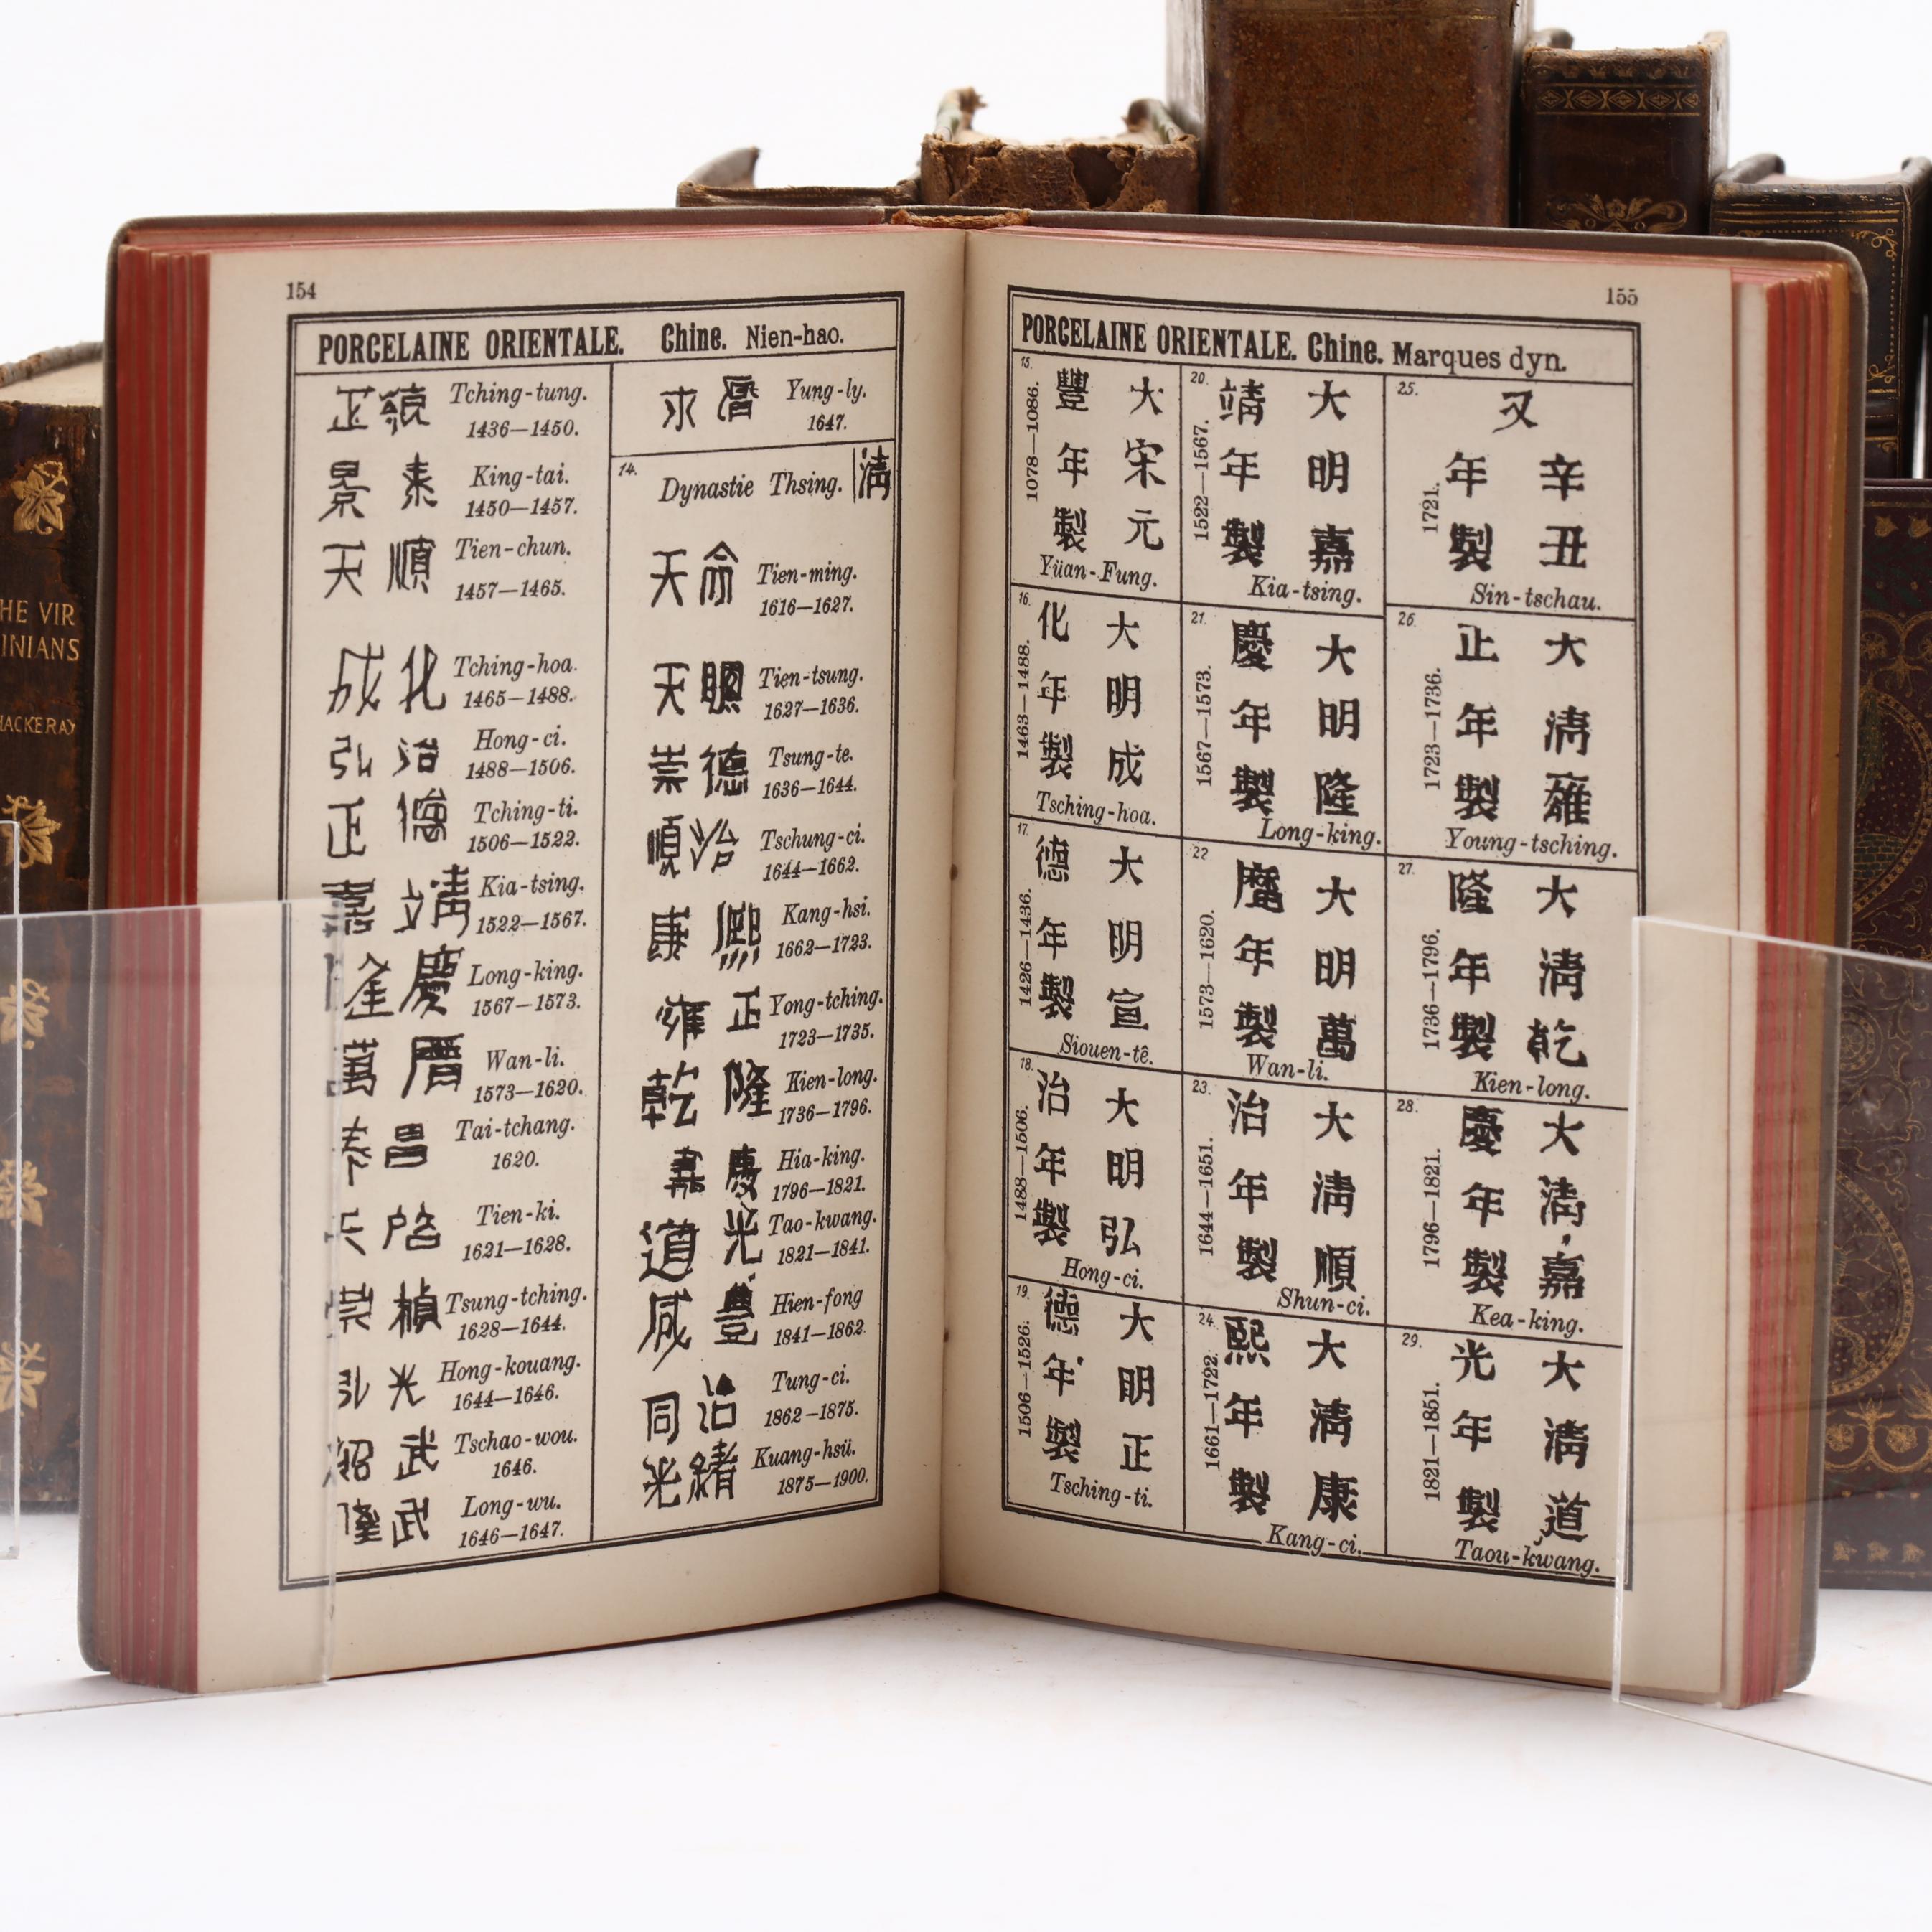 HE VIR
INIANS
HACKERAY
154
PORCELAINE ORIENTALE. Chine. Nien-hao.
正統 Tching-tung.
1436—1450.
景泰 King-tai.
1450—1457.
天順 Tien-chun.
1457—1465.
成化 Tching-hoa.
1465—1488.
弘治 Hong-ci.
1488—1506.
正德 Tching-ti.
1506—1522.
嘉靖 Kia-tsing.
1522—1567.
隆慶 Long-king.
1567—1573.
萬曆 Wan-li.
1573—1620.
泰昌 Tai-tchang.
1620.
天啓 Tien-ki.
1621—1628.
崇禎 Tsung-tching.
1628—1644.
弘光 Hong-kouang.
1644—1646.
紹武 Tschao-wou.
1646.
隆武 Long-wu.
1646—1647.
永曆 Yung-ly.
1647.
14. Dynastie Thsing. 淸
天命 Tien-ming.
1616—1627.
天聰 Tien-tsung.
1627—1636.
崇德 Tsung-te.
1636—1644.
順治 Tschung-ci.
1644—1662.
康熙 Kang-hsi.
1662—1723.
雍正 Yong-tching.
1723—1735.
乾隆 Kien-long.
1736—1796.
嘉慶 Hia-king.
1796—1821.
道光 Tao-kwang.
1821—1841.
咸豐 Hien-fong
1841—1862.
同治 Tung-ci.
1862—1875.
光緒 Kuang-hsü.
1875—1900.
155
PORCELAINE ORIENTALE. Chine. Marques dyn.
15.
1078—1086.
大宋元
豐年製
Yüan-Fung.
16.
1463—1488.
大明成
化年製
Tsching-hoa.
17.
1426—1436.
大明宣
德年製
Siouen-tê.
18.
1488—1506.
大明弘
治年製
Hong-ci.
19.
1506—1526.
大明正
德年製
Tsching-ti.
20.
1522—1567.
大明嘉
靖年製
Kia-tsing.
21.
1567—1573.
大明隆
慶年製
Long-king.
22.
1573—1620.
大明萬
曆年製
Wan-li.
23.
1644—1651.
大淸順
治年製
Shun-ci.
24.
1661—1722.
大淸康
熙年製
Kang-ci.
25.
1721.
又
辛丑
年製
Sin-tschau.
26.
1723—1736.
大淸雍
正年製
Young-tsching.
27.
1736—1796.
大淸乾
隆年製
Kien-long.
28.
1796—1821.
大淸嘉
慶年製
Kea-king.
29.
1821—1851.
大淸道
光年製
Taou-kwang.